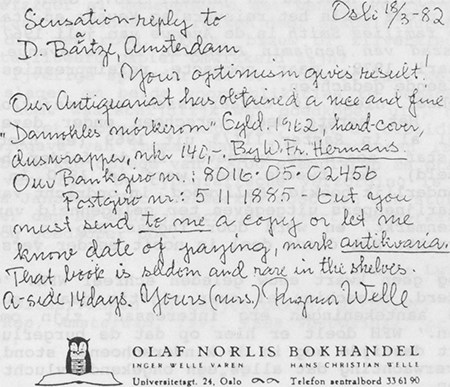 Oslo 18/3-82
Sensation-reply to
D. Bårtze, Amsterdam
Your optimism gives result!
Our Antiquariat has obtained a nice and fine
"Damokles' mörkerom" Gyld. 1962, hard-cover,
duswrapper, nkr 140,-. By W. Fr. Hermans.
Our Bankgiro nr.: 8016.05.02456
Postgiro nr.: 5 11 1885 - but you
must send to me a copy or let me
know date of paying, mark antikvaria.
That book is seldom and rare in the shelves.
A-side 14 days. Yours (mrs.) Welle
OLAF NORLIS BOKHANDEL
INGER WELLE VAREN HANS CHRISTIAN WELLE
Universitetsgt. 24, Oslo Telefon sentralbord 33 61 90